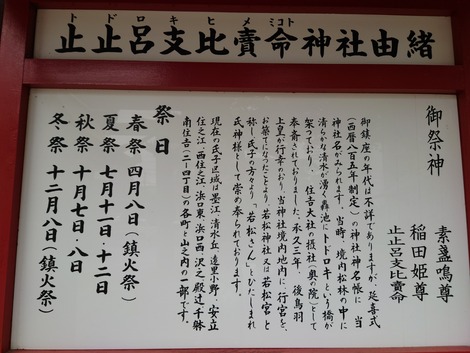 トドロキヒメミコト
止止呂支比賣命神社由緒
御祭神
素盞嗚尊
稲田姫尊
止止呂支比賣命
御鎮座の年代は不詳でありますが、延喜式
(西暦八百五年制定)の神社神名帳に、当
神社名がみられます。当時、境内松林の中に
清らかな清水が湧く轟池にトドロキという橋が
架っており、住吉大社の摂社(奥の院)として
奉斎されておりました。承久三年、後鳥羽
上皇が行幸のおり、当神社境内地内に、行宮を、
お築てになつたことより、若松神社又は若松宮と
称し、氏子の方々より「若松さん」とひたしまれ
氏神様として崇め奉られております。
現在の氏子区域は墨江、清水丘、遠里小野、安立
住之江、西住之江、浜口東、浜口西、沢之、殿辻、千躰
南住吉(二~四丁目)の各町と山之内の一部です。
祭日
春祭 四月八日(鎮火祭)
夏祭 七月十一日・十二日
秋祭 十月七日・八日
冬祭 十二月八日(鎮火祭)